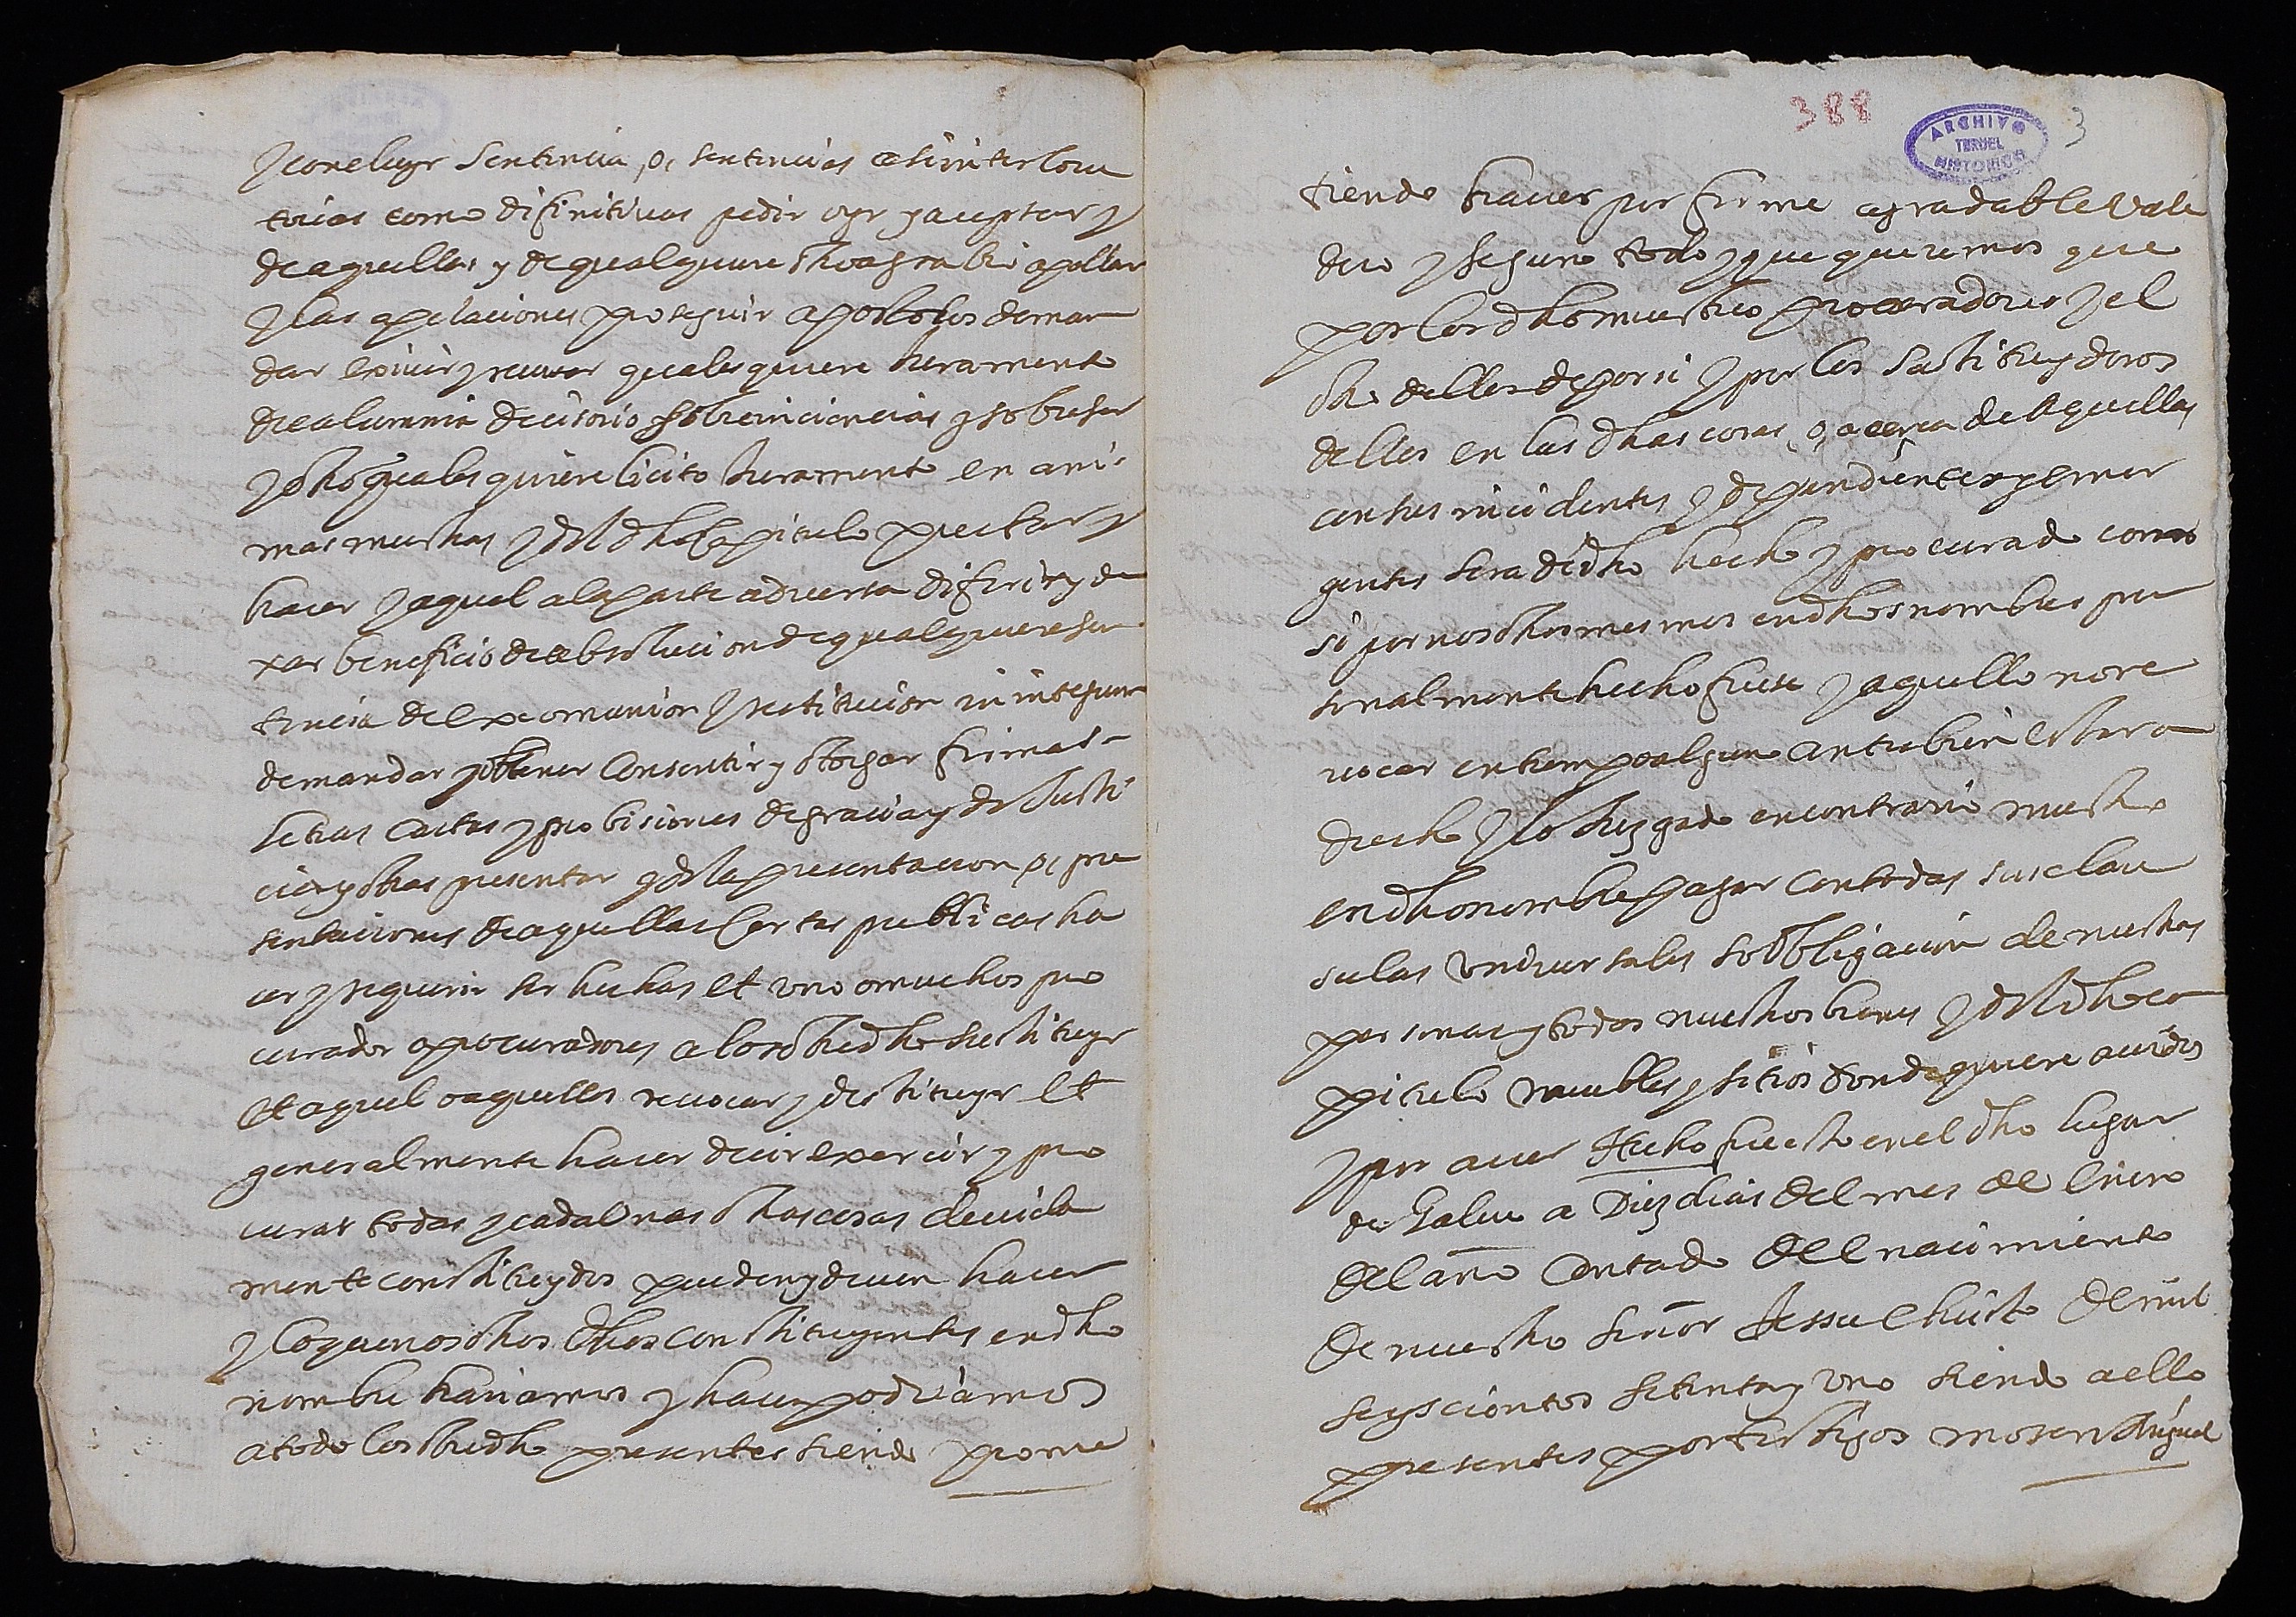 y concluyr sentencia, o, sentencias assi interlocu
torias como difinitiuas pedir oyr y aceptar y
de aquellas y de qualquiere otro agrabio apellar
y las apelaciones proseguir apostolos deman
dar exiuir y reuocar qualesquiere Juramento
de calumnia decisorio y sobre
y otro qualesquiere licito Juramento en ani-
mas nuestras y del dho capitulo prestar y
hacer y aquel a la parte aduersa diferir y de
xar beneficio de absolucion de qualquiere sen
tencia de excomunion y restitucion in integrum
demandar y obtener consentir y otorgar firmas
letras cartas y probisiones de gracia y de Justi
cia y otras presentar y de la presentacion, o, pre
sentaciones de aquellas cartas publicas ha
cer y requirir ser hechas et uno o muchos pro
curador o procuradores a lo sobredho substituyr
et aquel o aquellos reuocar y destituyr et
generalmente hacer decir exercir y pro
curar todas y cada unas otras cosas deuida
mente constituydos pueden y deuen hacer
y lo que nosotros dhos constituyentes en dho
nombre hariamos y hacer podriamos
a todo lo sobredho presentes siendo prome
388 3
ARCHIVO
TERUEL
HISTORICO
tiendo hauer por firme agradable vale
dero y seguro todo y que queremos que
por los dhos nuestros procuradores y el
otro dellos de por si y por los sustituydores
dellos en las dhas cosas, o, acerca de aquellas
con sus incidentes y dependientes y emer
gentes sera dicho hecho y procurado como
si por nosotros mesmos en dhos nombres per
sonalmente hecho fuese y aquello no re
uocar en tiempo alguno antes bien estar a
drecho y lo Juzgado en contrario nuestro
en dho nombre pagar con todas sus clau
sulas universales so obligacion de nuestras
personas y todos nuestros bienes y del dho ca
pitulo muebles y sitios donde quiere auidos
y por auer Hecho fue esto en el dho lugar
de Galue a Diez dias del mes de Enero
del año contado del nacimiento
de nuestro señor Jessu Christo de mil
seyscientos setenta y uno siendo a ello
presentes por testigos mosen Miguel